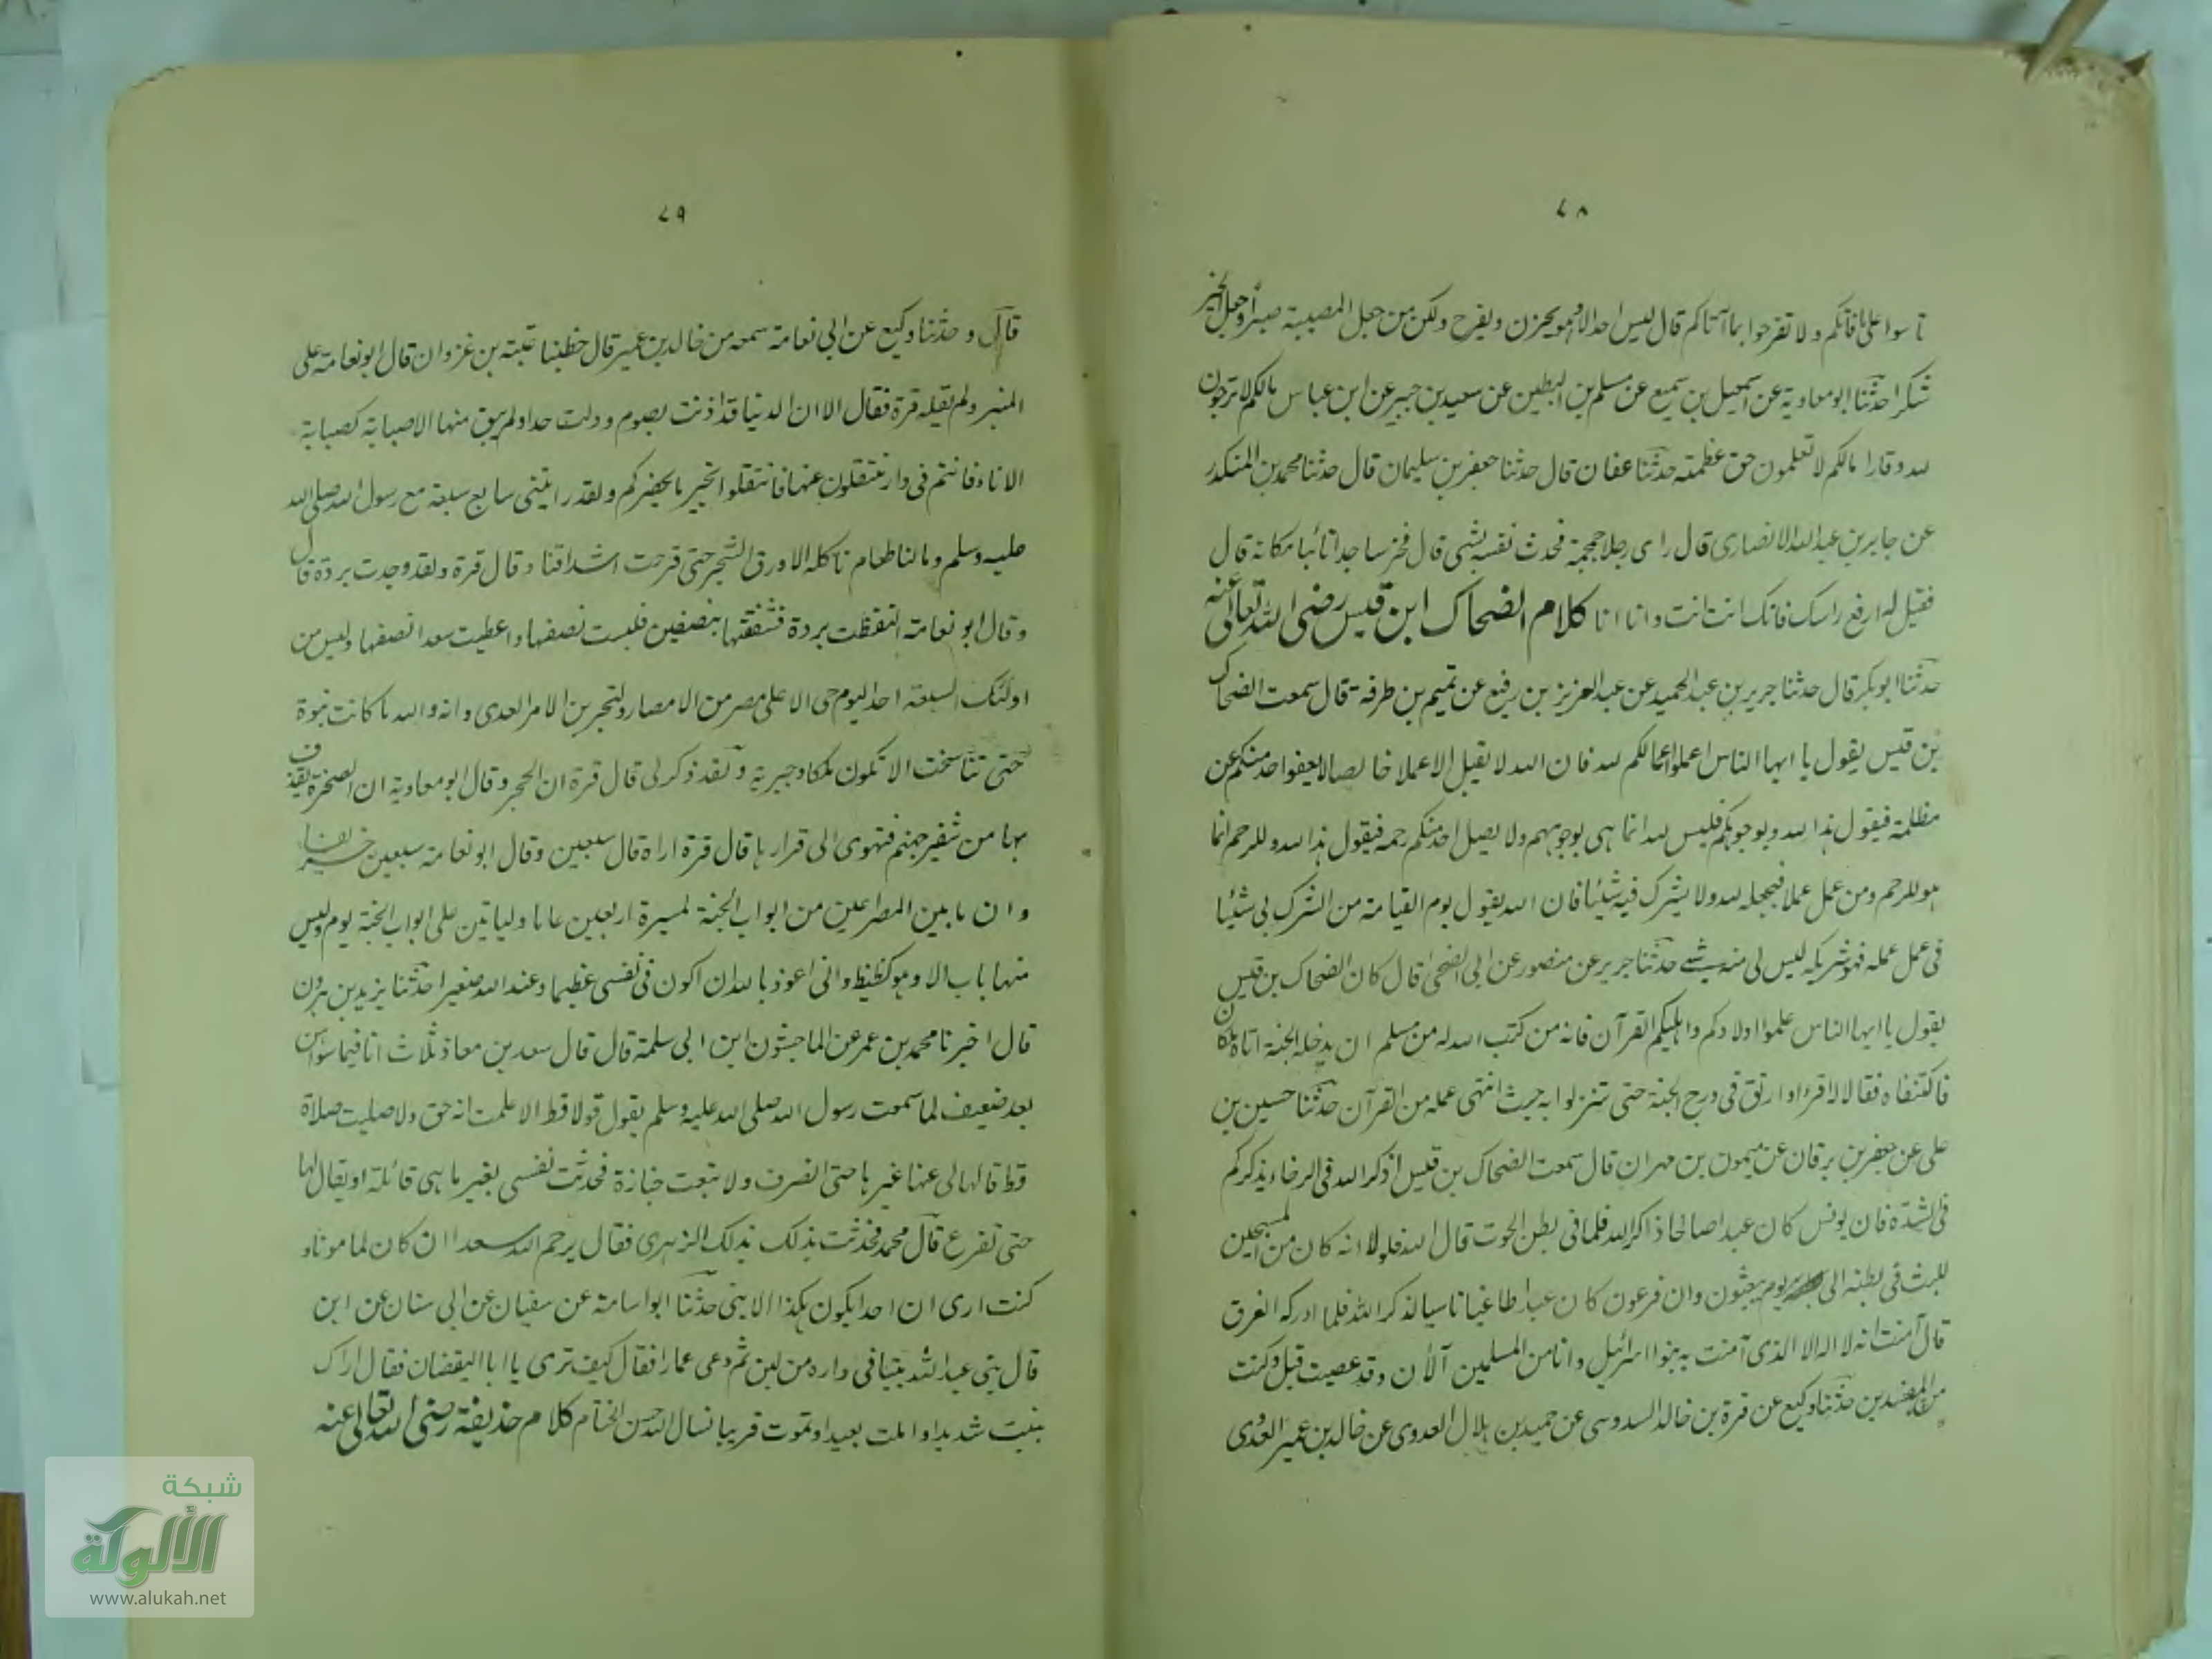 ٧٨
تاسوا على ما فاتكم ولا تفرحوا بما آتاكم قال ليس احد الا وهو يحزن ويفرح ولكن من جعل المصيبة صبرا وجعل الخير
شكرا حدثنا ابو معاوية عن اسمعيل بن سميع عن مسلم بن البطين عن سعيد بن جبير عن ابن عباس مالكم لا ترجون
لله وقارا مالكم لا تعلمون حق عظمته حدثنا عفان قال حدثنا جعفر بن سليمان قال حدثنا محمد بن المنكدر
عن جابر بن عبد الله الانصارى قال راى رجلا جمجمة فحدث نفسه بشى قال فخر ساجدا تائبا مكانه قال
فقيل له ارفع راسك فانك انت انت وانا انا كلام الضحاك ابن قيس رضى الله تعالى عنه
حدثنا ابو بكر قال حدثنا جرير بن عبد الحميد عن عبد العزيز بن رفيع عن تميم بن طرفة قال سمعت الضحاك
بن قيس يقول يا ايها الناس اعملوا اعمالكم لله فان الله لا يقبل الا عملا خالصا لا يعفو احد منكم عن
مظلمة فيقول هذا لله ولوجوهكم فليس لله انما هى لوجوههم ولا يصل احد منكم رحمه فيقول هذا لله وللرحم انما
هو للرحم ومن عمل عملا فيجعله لله ولا يشرك فيه شيئا فان الله يقول يوم القيامة من اشرك بى شيئا
فى عمل عمله فهو لشريكه ليس لى منه شے حدثنا جرير عن منصور عن ابى الضحى قال كان الضحاك بن قيس
يقول يا ايها الناس علموا اولادكم واهليكم القرآن فانه من كتب الله له من مسلم ان يدخله الجنة اتاه ملكان
فاكتنفاه فقالا له اقرا وارتق فى درج الجنة حتى تنزلوا به حيث انتهى عمله من القرآن حدثنا حسين بن
على عن جعفر بن برقان عن ميمون بن مهران قال سمعت الضحاك بن قيس اذكر الله فى الرخاء يذكركم
فى الشدة فان يونس كان عبدا صالحا ذاكرا لله فلما فى بطن الحوت قال الله فلولا انه كان من المسبحين
للبث فى بطنه الى يوم يبعثون وان فرعون كان عبدا طاغيا ناسيا لذكر الله فلما ادركه الغرق
قال آمنت انه لا اله الا الذى آمنت به بنوا اسرائيل وانا من المسلمين آلان وقد عصيت قبل وكنت
من المفسدين حدثنا وكيع عن قرة بن خالد السدوسى عن حميد بن هلال العدوى عن خالد بن عمير العدوى
٧٩
قال وحدثنا وكيع عن ابى نعامة سمعه من خالد بن عمير قال خطبنا عتبة بن غزوان قال ابو نعامة على
المنبر ولم يقله قرة فقال الا ان الدنيا قد اذنت بصرم وولت حدا ولم يبق منها الا صبابة كصبابة
الاناء فانتم فى دار تنتقلون عنها فانتقلوا بخير ما بحضركم ولقد رايتنى سابع سبعة مع رسول الله صلى الله
عليه وسلم وما لنا طعام ناكله الا ورق الشجر حتى قرحت اشداقنا وقال قرة ولقد وجدت بردة قال
وقال ابو نعامة التقطت بردة فشققتها بنصفين فلبست نصفها واعطيت سعدا نصفها وليس من
اولئك السبعة احد اليوم حى الا على مصر من الامصار ولتجربن الامر العدى وانه والله ما كانت نبوة
حتى تناسخت الا تكون ملكا وجبرية ولقد ذكر لى قال قرة ان الحجر وقال ابو معاوية ان الصخرة يقذف
بها من شفير جهنم فتهوى الى قرارها قال قرة اراه قال سبعين وقال ابو نعامة سبعين خريفا
وان ما بين المصراعين من ابواب الجنة لمسيرة اربعين عاما ولياتين على ابواب الجنة يوم وليس
منها باب الا وهو كظيظ وانى اعوذ بالله ان اكون فى نفسى عظيما وعند الله صغيرا حدثنا يزيد بن هرون
قال اخبرنا محمد بن عمر عن الماجشون ابن ابى سلمة قال قال سعد بن معاذ ثلاث انا فيما سواهن
بعد ضعيف لما سمعت رسول الله صلى الله عليه وسلم يقول قولا قط الا علمت انه حق ولا صليت صلاة
قط قالها لى عنها غيرها حتى انصرف ولا تبعت جنازة فحدثت نفسى بغير ما هى قائلة او يقال لها
حتى تفرغ قال محمد فحدثت بذلك بذلك الزهرى فقال يرحم الله سعدا ان كان لمامونا و
كنت ارى ان احدا يكون هكذا الا نبى حدثنا ابو اسامة عن سفيان عن ابى سنان عن ابن
قال بنى عبد الله بيتا فى داره من لبن ثم دعى عمارا فقال كيف ترى يا ابا اليقظان فقال اراك
بنيت شديدا واملت بعيدا وتموت قريبا نسال الله حسن الختام كلام حذيفة رضى الله تعالى عنه
شبكة
الألوكة
www.alukah.net